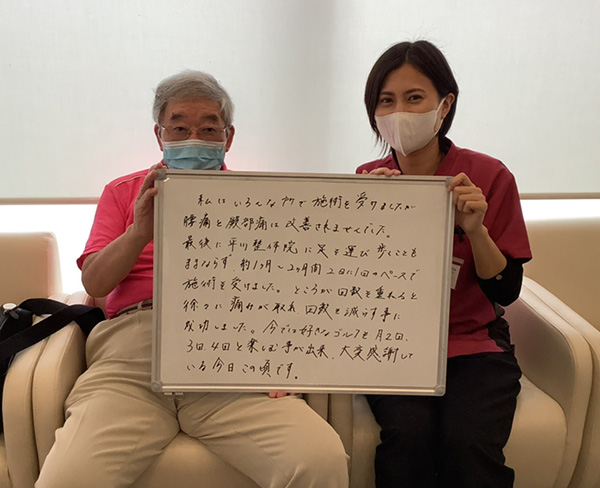 私はいろんな所で施術を受けましたが
腰痛と臀部痛は改善されませんでした。
最後に平川整体院に足を運び歩くことも
ままならず、約1ヶ月〜2ヶ月間2日に1回のペースで
施術を受けました。ところが回数を重ねると
徐々に痛みが取れ回数を減らす事に
成功しました。今では好きなゴルフも月2回、
3回、4回と楽しむ事が出来、大変感謝して
いる今日この頃です。